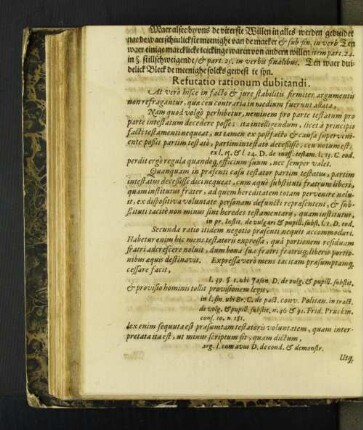 Maer alsoo by ons de uiterste Willen in alles werden geduidet
nae de waerschijnlickste meeninghe van de maecker & sub fin. in verb Ten
waer eenige merckelicke teicking waren van anderen willen item part. 24.
in § stilschweigende/ & part. 25. in verbis finalibus. Ten waer dui-
delick bleeck de meeninghe sulcks geweest te zyn.
Refutatio rationum dubitandi.
At verò hisce in facto & jure stabilitis firmiter argumentis
non refragantur, quæ ex contraria in medium fuerunt allata.
Nam quod volgò perhibetur, neminem pro parte testatum pro
parte intestatum decedere posse: ita intelligendum, si vel à principio
facti testamenti nequeat, ut tamen ex postfacto & causa superveni-
ente possit partim testatò, partim intestatò decessisse, cum notum est,
ex l. 15. & l. 24. D. de inoff. testam. l. 13. C. eod.
perdit ergò regula quandoq, officium suum, nec semper valet.
Quamquam in præsenti casu testator partim testatus, partim
intestatus decessisse dici nequeat, cum æquè substituti fratribus
quam instituitur frater, ad quem hereditatem totam pervenire volue-
rit, ex dispositiva voluntate personam defuncti repræsentent, & sub-
stituti taciti non minus sint heredes testamentarii, quam instituti,
in pr. Instit. de vulgari & pupill. subst. l. 1. D. eod.
Secunda ratio itidem negotio præsenti nequit accommodari.
Habetur enim hic mens testatoris expressa, quâ portionem residuam
fratri adcrescere noluit, dum bona sua fratris fratrisq, liberis portio-
nibus æquis destinavit. Expressa verò mens tacitam præsumptamq,
cessare facit.
l. 19. § 1. ubi Jason. D. de vulg. & pupill. substit.
& provisio hominis tollit provisionem legis.
in l. fin. ubi Dr. C. de pact. conv. Politan. in tract.
de vulg. & pupill. substit. n. 90 & 91. Frid. Pruckm.
cons. 10. n. 181.
Lex enim sequuta est præsumtam testatoris voluntatem, quam inter-
pretata ita est, ut minus scriptum sit, quam dictum,
arg. l. cum avus D. de cond. & demonstr.
Utq,